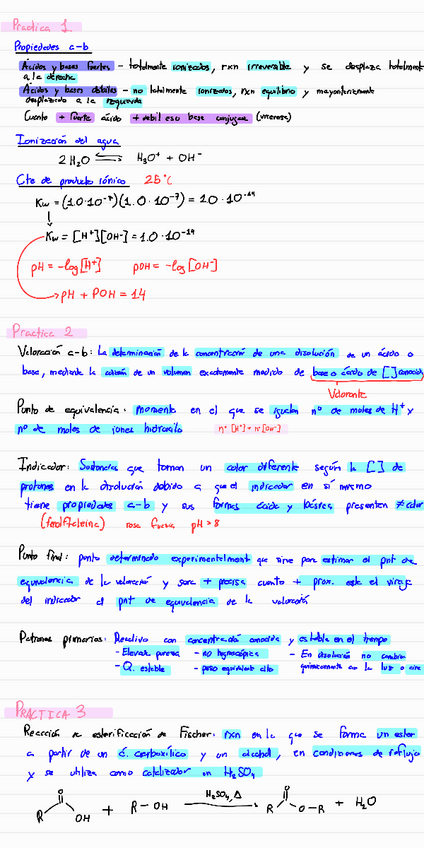 Práctica 1
Propiedades a-b
Ácidos y bases fuertes - totalmente ionizados, rxn irreversible y se desplaza totalmente
a la derecha
Ácidos y bases débiles - no totalmente ionizados, rxn equilibrio y mayoritariamente
desplazado a la izquierda
Cuanto + fuerte ácido + débil es su base conjugada (viceversa)
Ionización del agua
2 H₂O ⇌ H₃O⁺ + OH⁻
Cte de producto iónico 25°C
Kw = (1.0·10⁻⁷)(1.0·10⁻⁷) = 1.0·10⁻¹⁴
Kw = [H⁺][OH⁻] = 1.0·10⁻¹⁴
pH = -log[H⁺] pOH = -log[OH⁻]
pH + POH = 14
Práctica 2
Valoración a-b: La determinación de la concentración de una disolución de un ácido o
base, mediante la adición de un volumen exactamente medido de base o ácido de [ ] conocida
Valorante
Punto de equivalencia: momento en el que se igualan nº de moles de H⁺ y
nº de moles de iones hidroxilo n°[H⁺] = n°[OH⁻]
Indicador: Sustancias que toman un color diferente según la [ ] de
protones en la disolución debido a que el indicador en sí mismo
tiene propiedades a-b y sus formas ácida y básica presenten ≠ color
(fenolftaleina) rosa fucsia pH > 8
Punto final: punto determinado experimentalment que sirve para estimar el pnt de
equivalencia de la valoración y será + preciso cuanto + prox. este el viraje
del indicador al pnt de equivalencia de la valoración
Patrones primarios: Reactivo con concentración conocida y estable en el tiempo
- Elevada pureza - no higroscópica - En disolución no cambia
- Q. estable - peso equivalente alto químicamente con la luz o aire
PRÁCTICA 3
Reacción de esterificación de Fischer: rxn en la que se forma un ester
a partir de un á. carboxílico y un alcohol, en condiciones de reflujo
y se utiliza como catalizador un H₂SO₄
R O OH + R - OH H₂SO₄, Δ R O O-R + H₂O